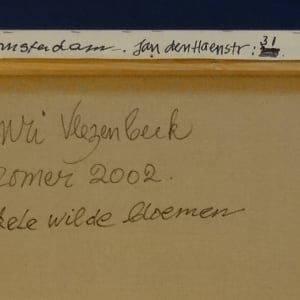 msterdam. Jan den Haenstr: 31
nri Vlezenbeek
zomer 2002.
kele wilde bloemen